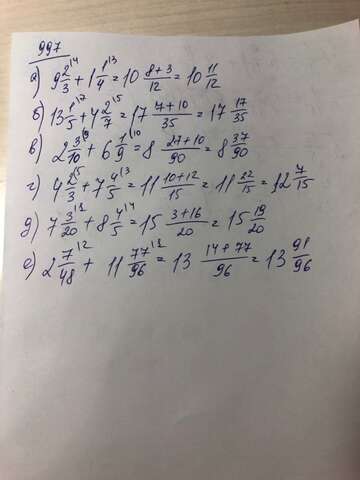 997
а) 9 2/3 \4 + 1 1/4 \3 = 10 8+3/12 = 10 11/12
б) 13 1/5 \7 + 4 2/7 \5 = 17 7+10/35 = 17 17/35
в) 2 3/10 \9 + 6 1/9 \10 = 8 27+10/90 = 8 37/90
г) 4 2/3 \5 + 7 4/5 \3 = 11 10+12/15 = 11 22/15 = 12 7/15
д) 7 3/20 \1 + 8 4/5 \4 = 15 3+16/20 = 15 19/20
е) 2 7/48 \2 + 11 77/96 \1 = 13 14+77/96 = 13 91/96